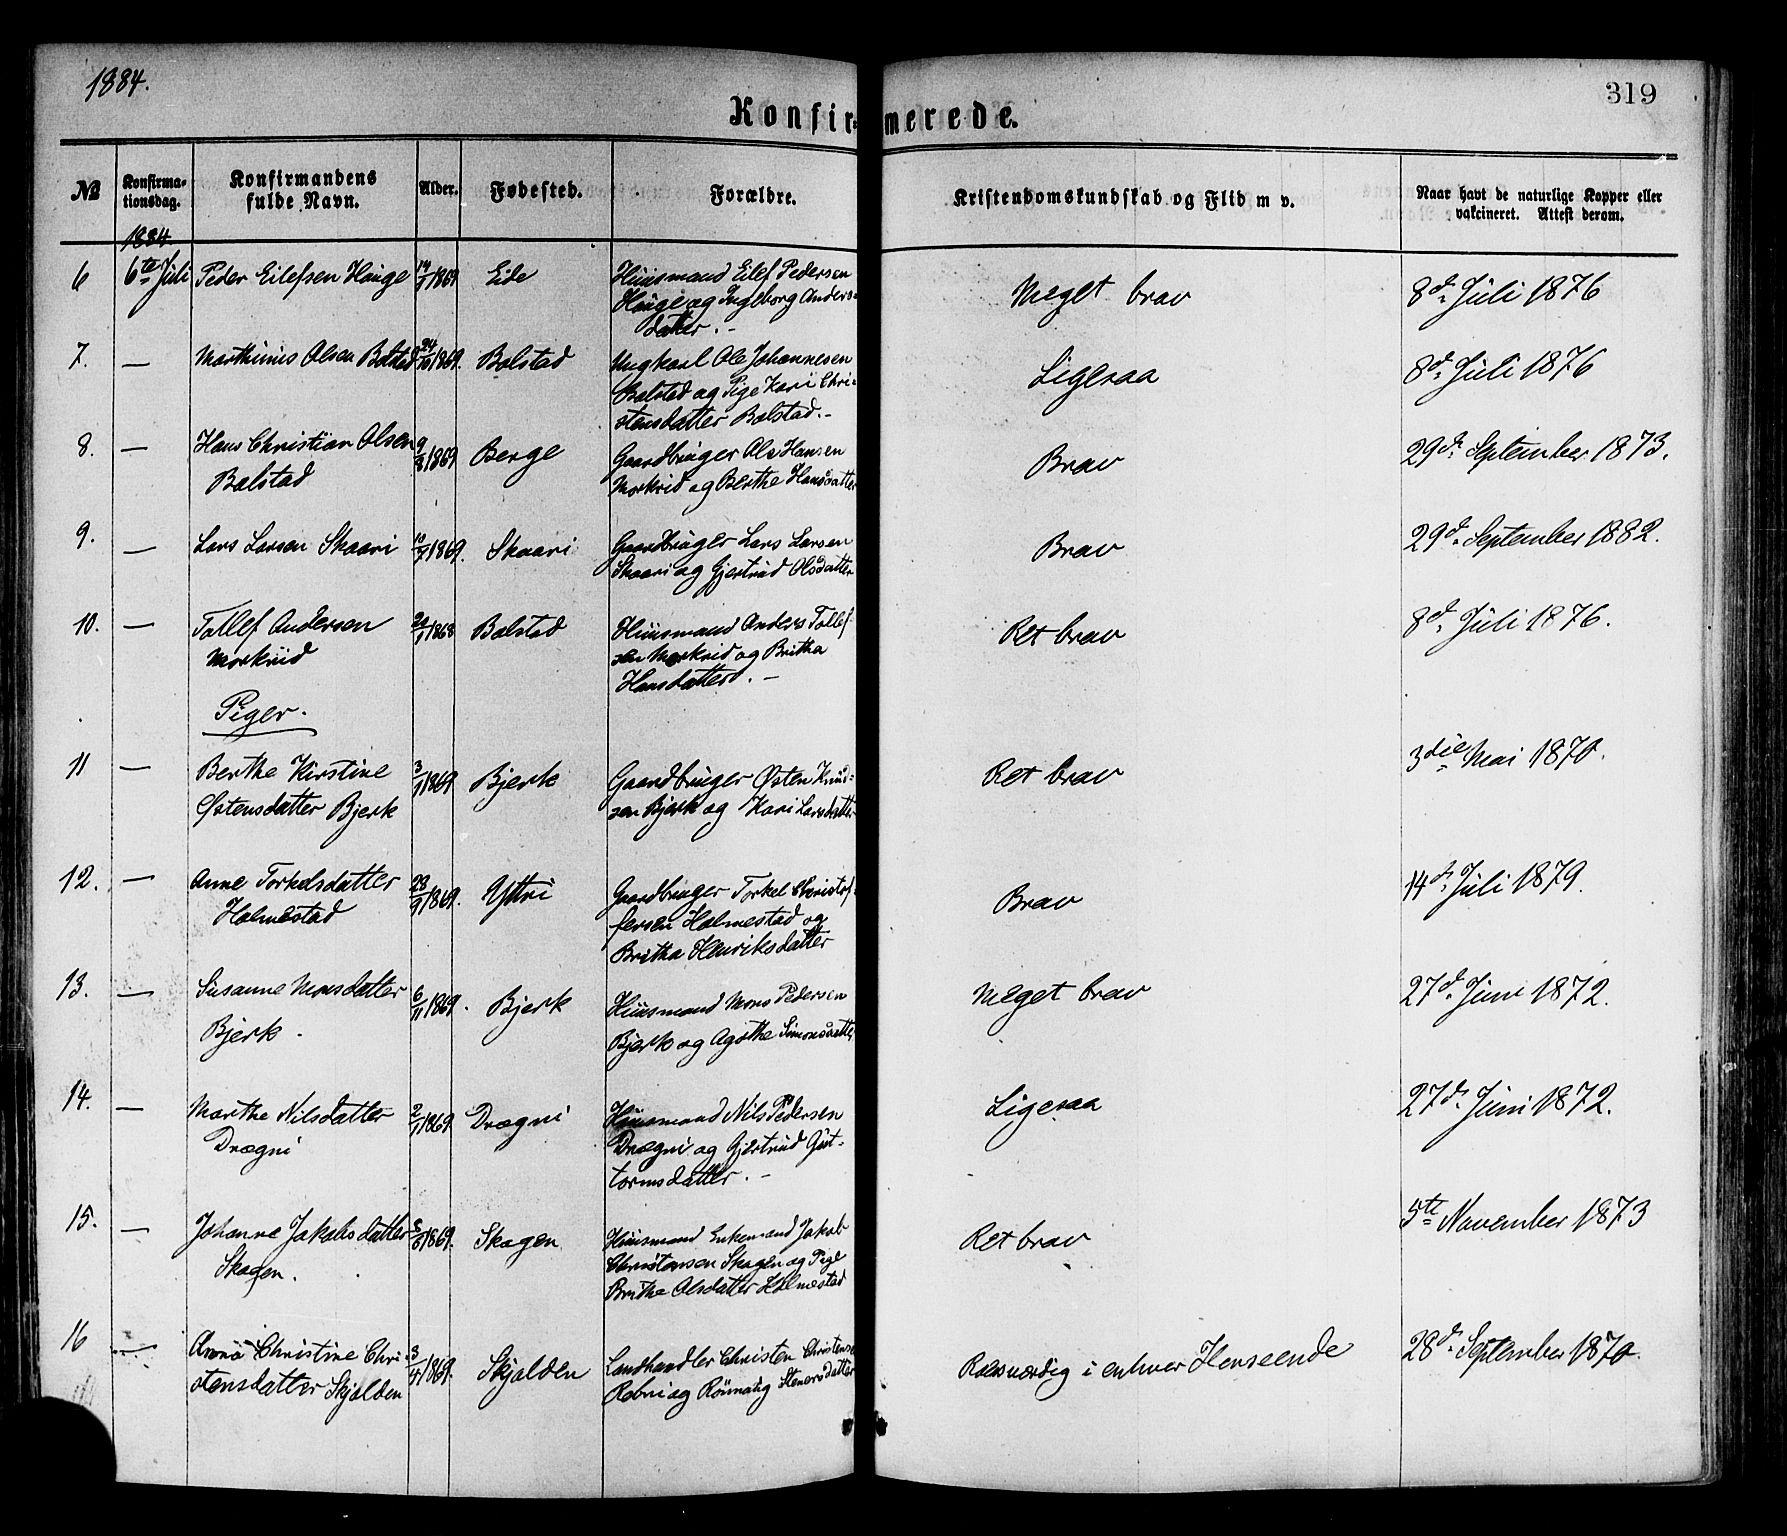 1884.
319
Konfirmerede.
№
Konfirma-
tionsdag.
Konfirmandens
fulde Navn.
Alder.
Fødested.
Forældre.
Kristendomskundskab og Flid m v.
Naar havt de naturlige Kopper eller
vakcineret. Attest derom.
1884.
6 6te Juli Peder Eilefsen Hauge 1869 Eide Huusmand Eilef Pedersen
Hauge og Ingeborg Anders-
datter.-
Meget brav 8d. Juli 1876
7. — Marthinus Olsen Bolstad 24/10 1869. Bolstad Ungkarl Ole Johannesen
Bolstad og Pige Kari Chri-
stensdatter Bolstad.-
Ligesaa 8d. Juli 1876
8. — Hans Christian Olsen
Bolstad
9/8 1869 Berge Gaardbruger Ole Hansen
Morkrid og Berthe Hansdatter
Brav 29d. September 1873.
9. — Lars Larsen Skaari 1869. Skaari Gaardbruger Lars Larsen
Skaari og Gjertrud Olsdatter
Brav 29d. September 1882.
10. — Tollef Andersen
Morkrid
1868 Bolstad Huusmand Anders Tollef-
sen Morkrid og Britha
Hansdatter. -
Ret brav 8d. Juli 1876.
Piger.
11 — Berthe Kirstine
Østensdatter Bjerk
3/1 1869 Bjerk Gaardbruger Østen Knud-
sen Bjerk og Kari Larsdatter
Ret brav 3die Mai 1870.
12. — Anne Torkelsdatter
Holmestad
23/9 1869. Yttri Gaardbruger Torkel Christof-
fersen Holmestad og
Britha Henriksdatter
Brav 14d. Juli 1879.
13. — Susanne Monsdatter
Bjerk.
6/11 1869. Bjerk Huusmand Mons Pedersen
Bjerk og Agathe Simonsdatter
Meget brav 27d. Juni 1872.
14. — Marthe Nilsdatter
Drægni
2/1 1869. Drægni Huusmand Nils Pedersen
Drægni og Gjertrud Gut-
tormsdatter. -
Ligesaa 27d. Juni 1872.
15. — Johanne Jakobsdatter
Skagen.
1869. Skagen Huusmand Enkemand Jakob
Christensen Skagen og Pige
Brithe Olsdatter Holmestad
Ret brav 5te November 1873
16 — Christine Chri-
stensdatter Skjolden
1869. Skjolden Landhandler Christen Christensen
og Rønnaug Stenersdatter
Rosværdig i enhver Henseende 28d. September 1870.